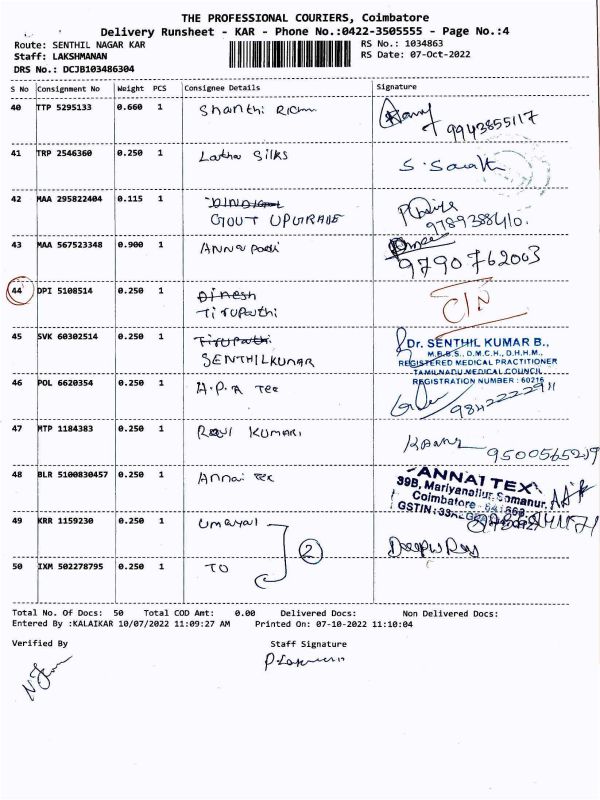 THE PROFESSIONAL COURIERS, Coimbatore
Delivery Runsheet - KAR - Phone No.:0422-3505555 - Page No.:4
Route: SENTHIL NAGAR KAR RS No.: 1034863
Staff: LAKSHMANAN RS Date: 07-Oct-2022
DRS No.: DCJB103486304
S No Consignment No Weight PCS Consignee Details Signature
40 TTP 5295133 0.660 1 Shanthi 9943855117
41 TRP 2546360 0.250 1 Latha Silks
42 MAA 295822404 0.115 1
GOUT UPGRADE
43 MAA 567523348 0.900 1 Anna 9790762003
44 DPI 5108514 0.250 1 Dinesh
Tirupathi
45 SVK 60302514 0.250 1 Tirupathi
SENTHILKUMAR
Dr. SENTHIL KUMAR B.,
M.B.B.S., D.M.C.H., D.H.H.M.,
REGISTERED MEDICAL PRACTITIONER
TAMILNADU MEDICAL COUNCIL
REGISTRATION NUMBER : 60216
46 POL 6620354 0.250 1 A.P.A Tex
47 MTP 1184383 0.250 1 Ravi KUMAR
48 BLR 5100830457 0.250 1 Annai Tex
ANNAI TEX
39B, Mariyanallur, Somanur,
Coimbatore
49 KRR 1159230 0.250 1 Umayal
2
50 IXM 502278795 0.250 1 TO
Total No. Of Docs: 50 Total COD Amt: 0.00 Delivered Docs: Non Delivered Docs:
Entered By :KALAIKAR 10/07/2022 11:09:27 AM Printed On: 07-10-2022 11:10:04
Verified By Staff Signature